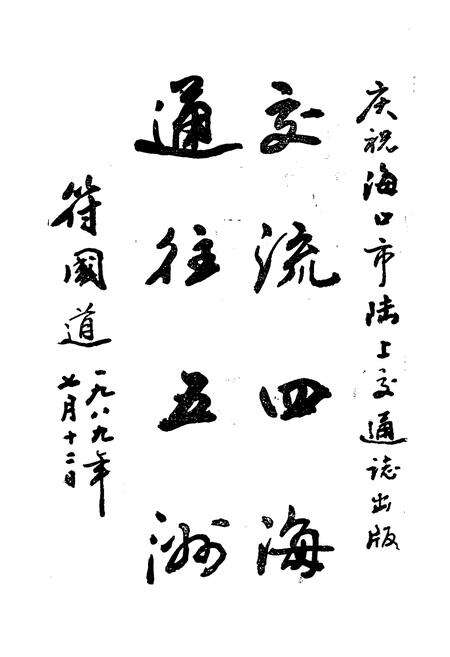 庆祝海口市陆上交通誌出版
交流四海
通往五洲
符國道
一九八九年
七月十二日